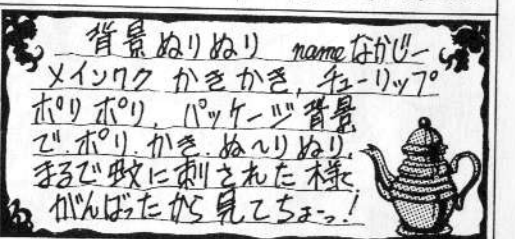 背景ぬりぬり nameなかじー
メインワク かきかき, チューリップ
ポリポリ, パッケージ背景
で.ポリ.かき.ぬ〜りぬり,
まるで蚊に刺された様,
がんばったから見てちょーっ!